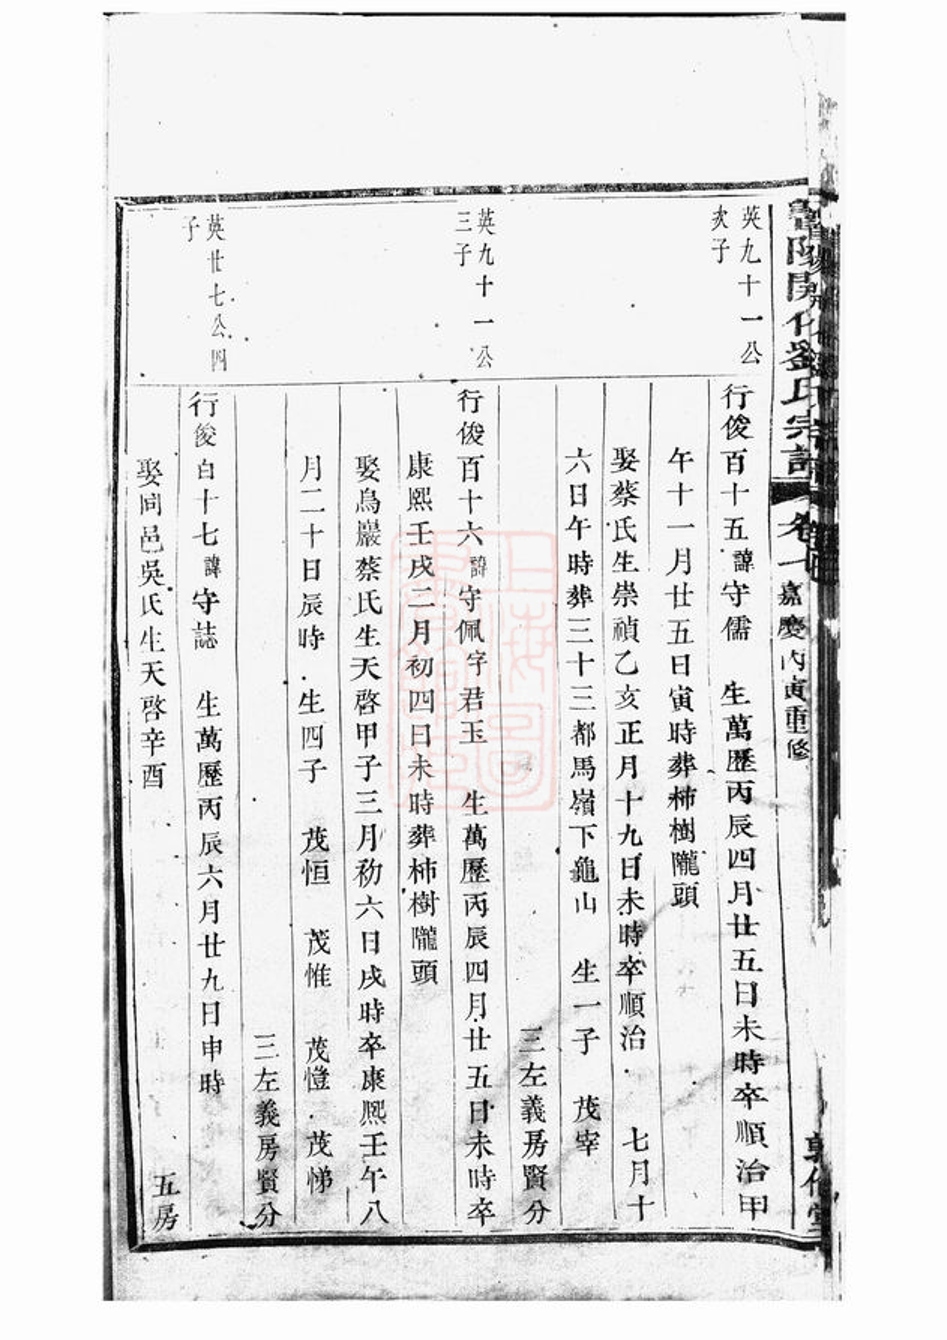 開化劉氏宗譜 卷七 嘉慶丙寅重修
英九十一公
次子
行俊百十五諱守儒 生萬歷丙辰四月廿五日未時卒順治甲
午十一月廿五日寅時葬柿樹隴頭
娶蔡氏生崇禎乙亥正月十九日未時卒順治 七月十
六日午時葬三十三都馬嶺下龜山 生一子 茂宰
三左義房賢分
英九十一公
三子
行俊百十六諱守佩字君玉 生萬歷丙辰四月廿五日未時卒
康熙壬戌二月初四日未時葬柿樹隴頭
娶鳥巖蔡氏生天啓甲子三月初六日戌時卒康熙壬午八
月二十日辰時 生四子 茂恒 茂惟 茂愷 茂悌
三左義房賢分
英廿七公四
子
行俊百十七諱守誌 生萬歷丙辰六月廿九日申時
娶同邑吳氏生天啓辛酉
五房